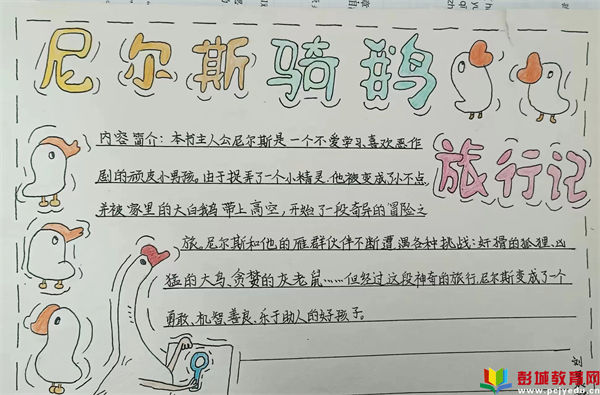 尼尔斯骑鹅
旅行记
内容简介：本书主人公尼尔斯是一个不爱学习喜欢恶作
剧的顽皮小男孩。由于捉弄了一个小精灵，他被变成了小不点，
并被家里的大白鹅带上高空，开始了一段奇异的冒险之
旅。尼尔斯和他的雁群伙伴不断遭遇各种挑战：奸猾的狐狸、凶
猛的大鸟、贪婪的灰老鼠……但经过这段神奇的旅行，尼尔斯变成了一个
勇敢、机智、善良、乐于助人的好孩子。
彭城教育网
www.pcjyedu.cn